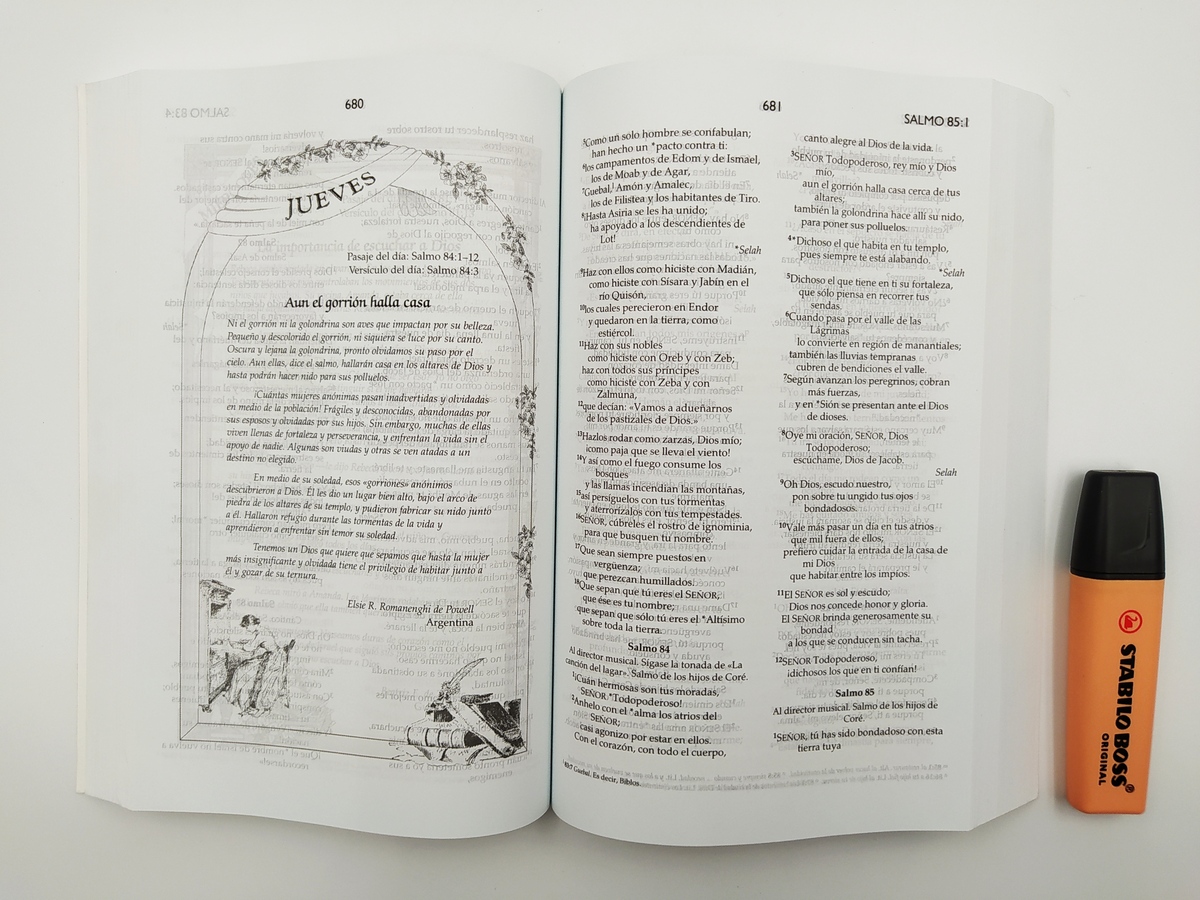 680
JUEVES
Pasaje del día: Salmo 84:1–12
Versículo del día: Salmo 84:3
Aun el gorrión halla casa
Ni el gorrión ni la golondrina son aves que impactan por su belleza.
Pequeño y descolorido el gorrión, ni siquiera se luce por su canto.
Oscura y lejana la golondrina, pronto olvidamos su paso por el
cielo. Aun ellas, dice el salmo, hallarán casa en los altares de Dios y
hasta podrán hacer nido para sus polluelos.
¡Cuántas mujeres anónimas pasan inadvertidas y olvidadas
en medio de la población! Frágiles y desconocidas, abandonadas por
sus esposos y olvidadas por sus hijos. Sin embargo, muchas de ellas
viven llenas de fortaleza y perseverancia, y enfrentan la vida sin el
apoyo de nadie. Algunas son viudas y otras se ven atadas a un
destino no elegido.
En medio de su soledad, esos «gorriones» anónimos
descubrieron a Dios. Él les dio un lugar bien alto, bajo el arco de
piedra de los altares de su templo, y pudieron fabricar su nido junto
a él. Hallaron refugio durante las tormentas de la vida y
aprendieron a enfrentar sin temor su soledad.
Tenemos un Dios que quiere que sepamos que hasta la mujer
más insignificante y olvidada tiene el privilegio de habitar junto a
él y gozar de su ternura.
Elsie R. Romanenghi de Powell
Argentina
681
SALMO 85:1
⁵Como un solo hombre se confabulan;
han hecho un *pacto contra ti:
⁶los campamentos de Edom y de Ismael,
los de Moab y de Agar,
⁷Guebal, Amón y Amalec,
los de Filistea y los habitantes de Tiro.
⁸¡Hasta Asiria se les ha unido;
ha apoyado a los descendientes de
Lot!
*Selah
⁹Haz con ellos como hiciste con Madián,
como hiciste con Sísara y Jabín en el
río Quisón,
¹⁰los cuales perecieron en Endor
y quedaron en la tierra, como
estiércol.
¹¹Haz con sus nobles
como hiciste con Oreb y con Zeb;
haz con todos sus príncipes
como hiciste con Zeba y con
Zalmuna,
¹²que decían: «Vamos a adueñarnos
de los pastizales de Dios.»
¹³Hazlos rodar como zarzas, Dios mío;
¡como paja que se lleva el viento!
¹⁴Y así como el fuego consume los
bosques
y las llamas incendian las montañas,
¹⁵así persíguelos con tus tormentas
y aterrorízalos con tus tempestades.
¹⁶SEÑOR, cúbreles el rostro de ignominia,
para que busquen tu nombre.
¹⁷Que sean siempre puestos en
vergüenza;
que perezcan humillados.
¹⁸Que sepan que tú eres el SEÑOR,
que ése es tu nombre;
que sepan que sólo tú eres el *Altísimo
sobre toda la tierra.
Salmo 84
Al director musical. Sígase la tonada de «La
canción del lagar». Salmo de los hijos de Coré.
¹¡Cuán hermosas son tus moradas,
SEÑOR *Todopoderoso!
²Anhelo con el *alma los atrios del
SEÑOR;
casi agonizo por estar en ellos.
Con el corazón, con todo el cuerpo,
83:7 Guebal. Es decir, Biblos.
canto alegre al Dios de la vida.
³SEÑOR Todopoderoso, rey mío y Dios
mío,
aun el gorrión halla casa cerca de tus
altares;
también la golondrina hace allí su nido,
para poner sus polluelos.
⁴*Dichoso el que habita en tu templo,
pues siempre te está alabando.
*Selah
⁵Dichoso el que tiene en ti su fortaleza,
que sólo piensa en recorrer tus
sendas.
⁶Cuando pasa por el valle de las
Lágrimas
lo convierte en región de manantiales;
también las lluvias tempranas
cubren de bendiciones el valle.
⁷Según avanzan los peregrinos, cobran
más fuerzas,
y en *Sión se presentan ante el Dios
de dioses.
⁸Oye mi oración, SEÑOR, Dios
Todopoderoso;
escúchame, Dios de Jacob.
Selah
⁹Oh Dios, escudo nuestro,
pon sobre tu ungido tus ojos
bondadosos.
¹⁰Vale más pasar un día en tus atrios
que mil fuera de ellos;
prefiero cuidar la entrada de la casa de
mi Dios
que habitar entre los impíos.
¹¹El SEÑOR es sol y escudo;
Dios nos concede honor y gloria.
El SEÑOR brinda generosamente su
bondad
a los que se conducen sin tacha.
¹²SEÑOR Todopoderoso,
¡dichosos los que en ti confían!
Salmo 85
Al director musical. Salmo de los hijos de
Coré.
¹SEÑOR, tú has sido bondadoso con esta
tierra tuya
STABILO BOSS®
ORIGINAL